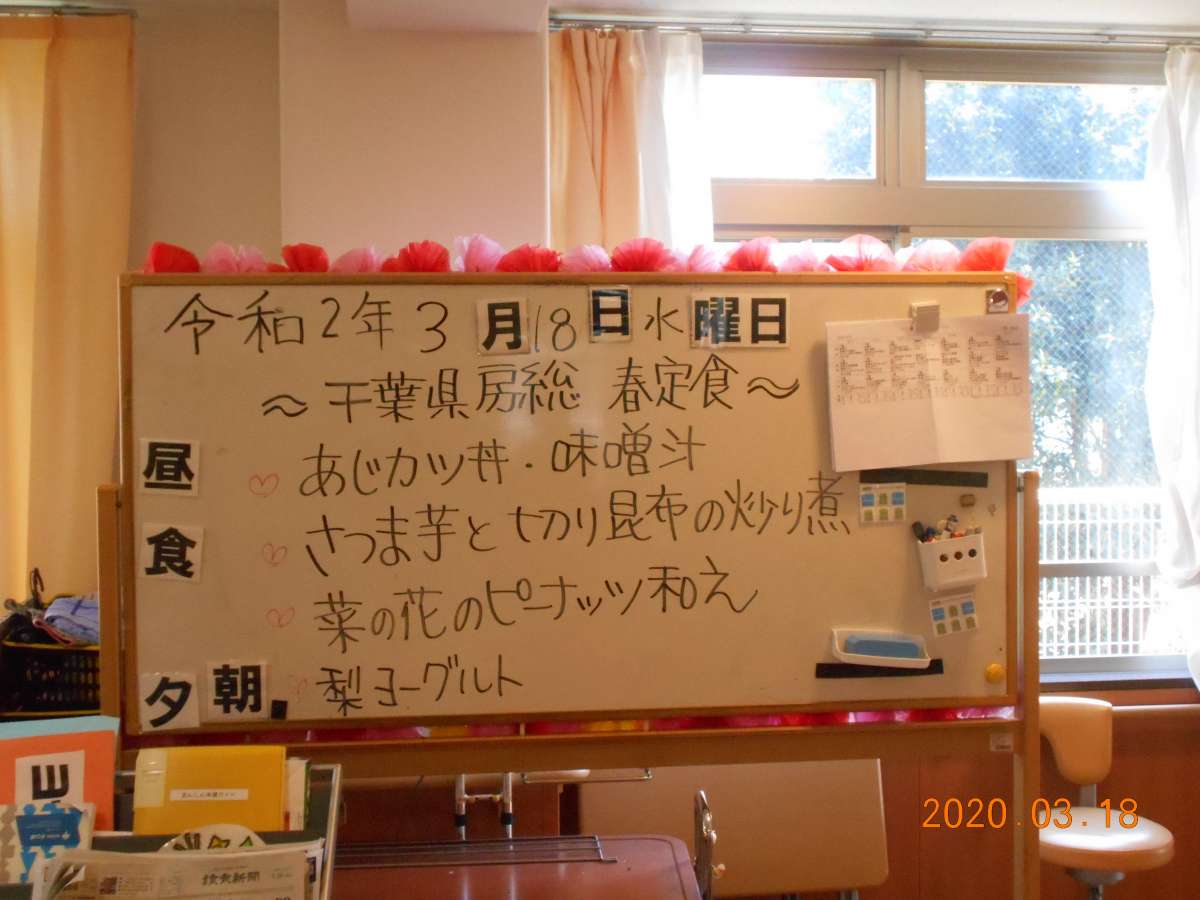 令和2年3月18日水曜日
～千葉県房総 春定食～
昼食
あじカツ丼・味噌汁
さつま芋と切り昆布の炒り煮
菜の花のピーナッツ和え
梨ヨーグルト
夕 朝
読売新聞
2020.03.18